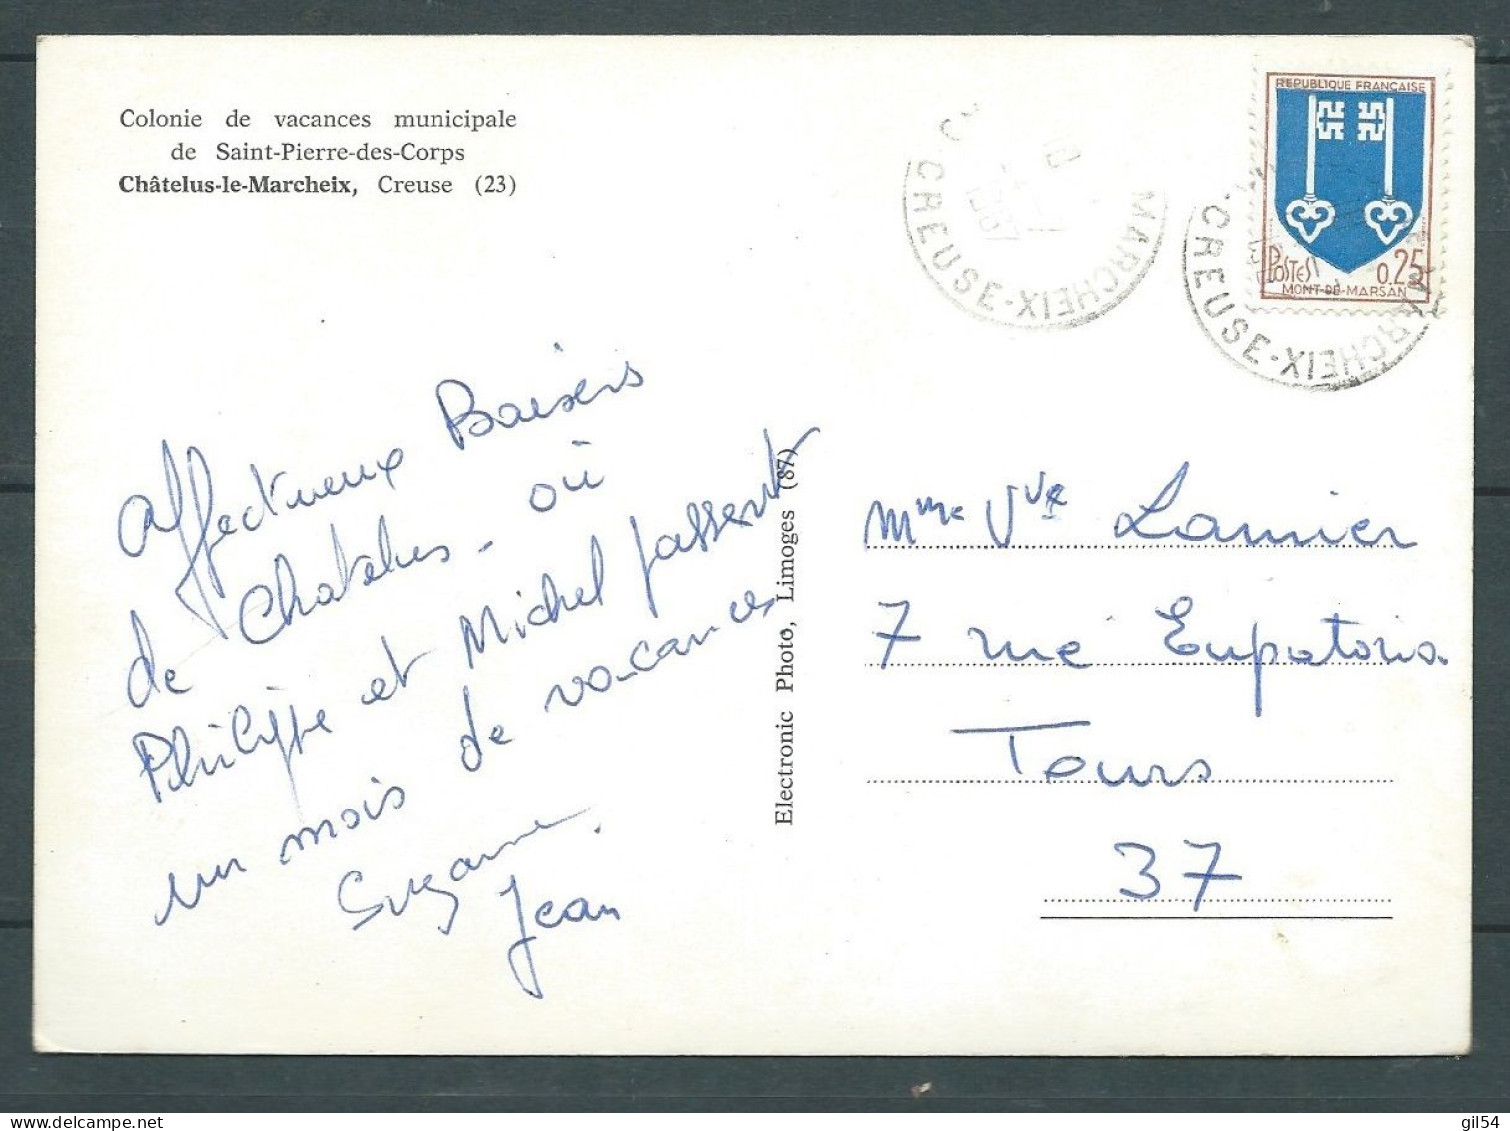 Colonie de vacances municipale
de Saint-Pierre-des-Corps
Châtelus-le-Marcheix, Creuse (23)
REPUBLIQUE FRANÇAISE
POSTES 0.25
MONT-DE-MARSAN
MARCHEIX
CREUSE
MARCHEIX
CREUSE
Affectueux Baisers
de Chatelus - où
Philippe et Michel passent
un mois de vacances
Suzanne.
Jean
Electronic Photo, Limoges (87)
Mme Vve Lamier
7 rue Eupatoria
Tours
37
delcampe.net
gil54